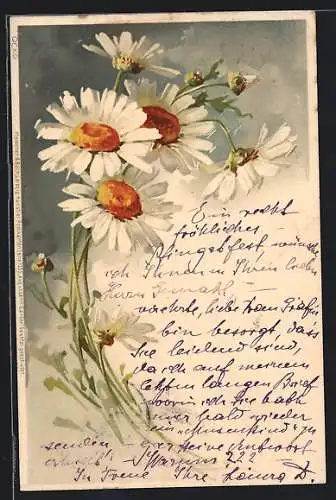 Ein recht
fröhliches
Pfingstfest, wünsche
ich Ihnen u. Ihrem lieben
Herrn Gemahl –
verehrte, liebe Frau Gräfin
bin besorgt, dass
Sie leidend sind,
da ich auf meinen
letzten langen Brief
worin ich Sie bath
mir bald wieder
ein
senden – gar keine Antwort
erhielt! Warum???
In Treue Ihre